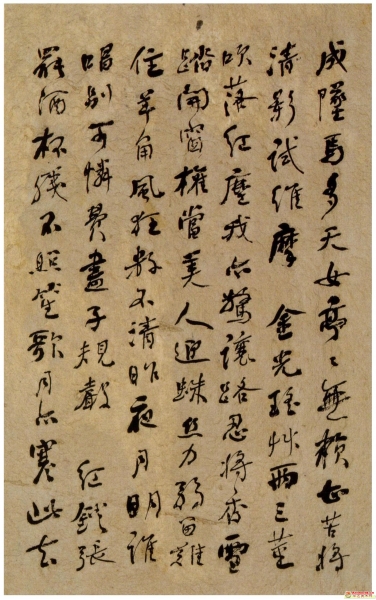 成墜馬多天女亭〻無賴甚苦將
清影試維摩 金光瑤艸兩三莖
吹落紅塵我亦驚讓路忍將香雪
踏開窗權當美人迎蛛絲力弱留難
住羊角風狂數不清昨夜月明誰
唱別可憐費盡子規聲 紅張
罷酒杯殘不照笙歌月亦寒此去